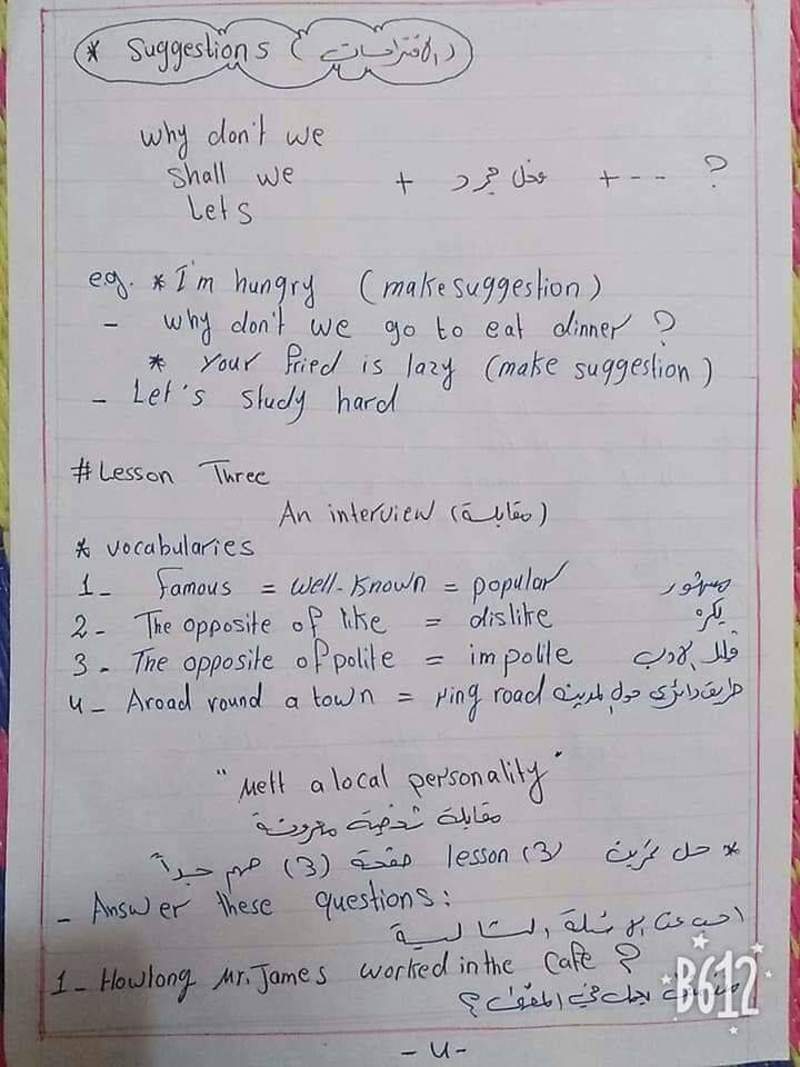 * Suggestions (الاقتراحات)
why don't we
shall we + فعل مجرد + --- ?
Lets
e.g. * I'm hungry (make suggestion)
- why don't we go to eat dinner ?
* Your fried is lazy (make suggestion)
- Let's study hard
# Lesson Three
An interview (مقابلة)
* vocabularies
1- Famous = well-known = popular مشهور
2- The opposite of like = dislike يكره
3- The opposite of polite = impolite قليل الادب
4- Aroad round a town = ring road طريق دائري حول المدينه
"Mett a local personality"
مقابلة شخصية معروفة
* حل تمرين lesson (3) صفحة (3) مهم جداً
- Answer these questions:
اجب عن الاسئلة التالية
1- How long Mr. James worked in the Cafe ?
يعمل في المقهى ؟
B612
- 4 -